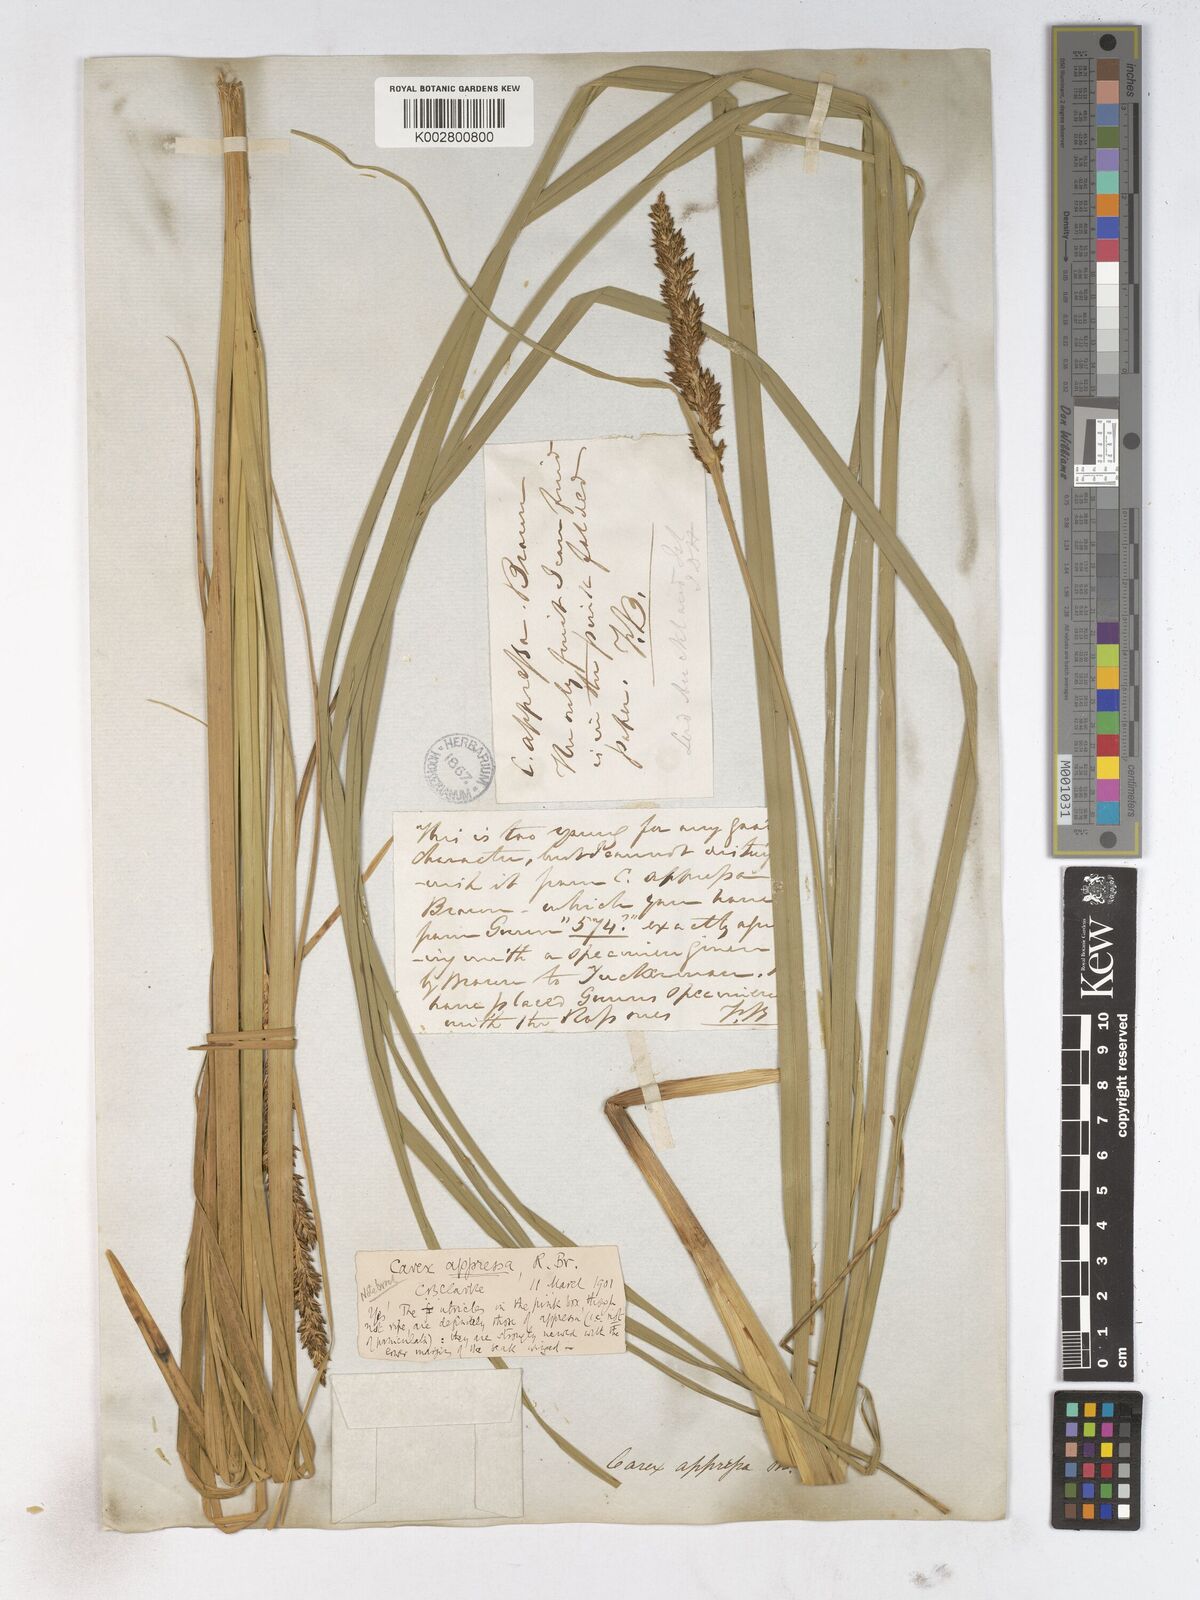 ROYAL BOTANIC GARDENS KEW
K002800800
C. appressa. Brown
The only fruit I can find
is in the pink folded
paper. F.B.
Lord Auckland Isl
HERBARIUM
HOOKERIANUM
1867.
This is too young for any good
character, but I cannot disting
-uish it from C. appressa
Brown - which you have
from Gunn "574?" exactly agree
-ing with a specimen given
by Brown to Tuckerman. I
have placed Gunn's specimen
with the Ross ones F.B
Carex appressa, R. Br.
CBClarke 11 March 1901
Yes! The utricles in the pink box, tho
not ripe, are definitely those of appressa (i.e. not
of paniculata): they are strongly nerved with the
lower margins of the beak winged -
Carex appressa Br.
inches
centimetres
Density
Don Williams
M001031
Royal Botanic Gardens
Kew
copyright reserved
0 1 2 3 4 5 6 7 8 9 10
cm